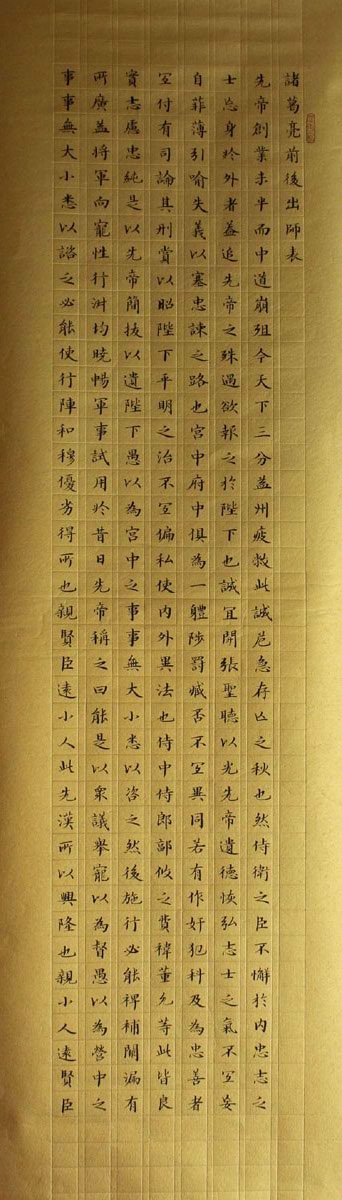 諸葛亮前後出師表
先帝創業未半而中道崩殂今天下三分益州疲敝此誠危急存亡之秋也然侍衛之臣不懈於內忠志之
士忘身於外者蓋追先帝之殊遇欲報之於陛下也誠宜開張聖聽以光先帝遺德恢弘志士之氣不宜妄
自菲薄引喻失義以塞忠諫之路也宮中府中俱為一體陟罰臧否不宜異同若有作奸犯科及為忠善者
宜付有司論其刑賞以昭陛下平明之治不宜偏私使內外異法也侍中侍郎郭攸之費禕董允等此皆良
實志慮忠純是以先帝簡拔以遺陛下愚以為宮中之事事無大小悉以咨之然後施行必能裨補闕漏有
所廣益將軍向寵性行淑均曉暢軍事試用於昔日先帝稱之曰能是以眾議舉寵以為督愚以為營中之
事事無大小悉以諮之必能使行陣和穆優劣得所也親賢臣遠小人此先漢所以興隆也親小人遠賢臣